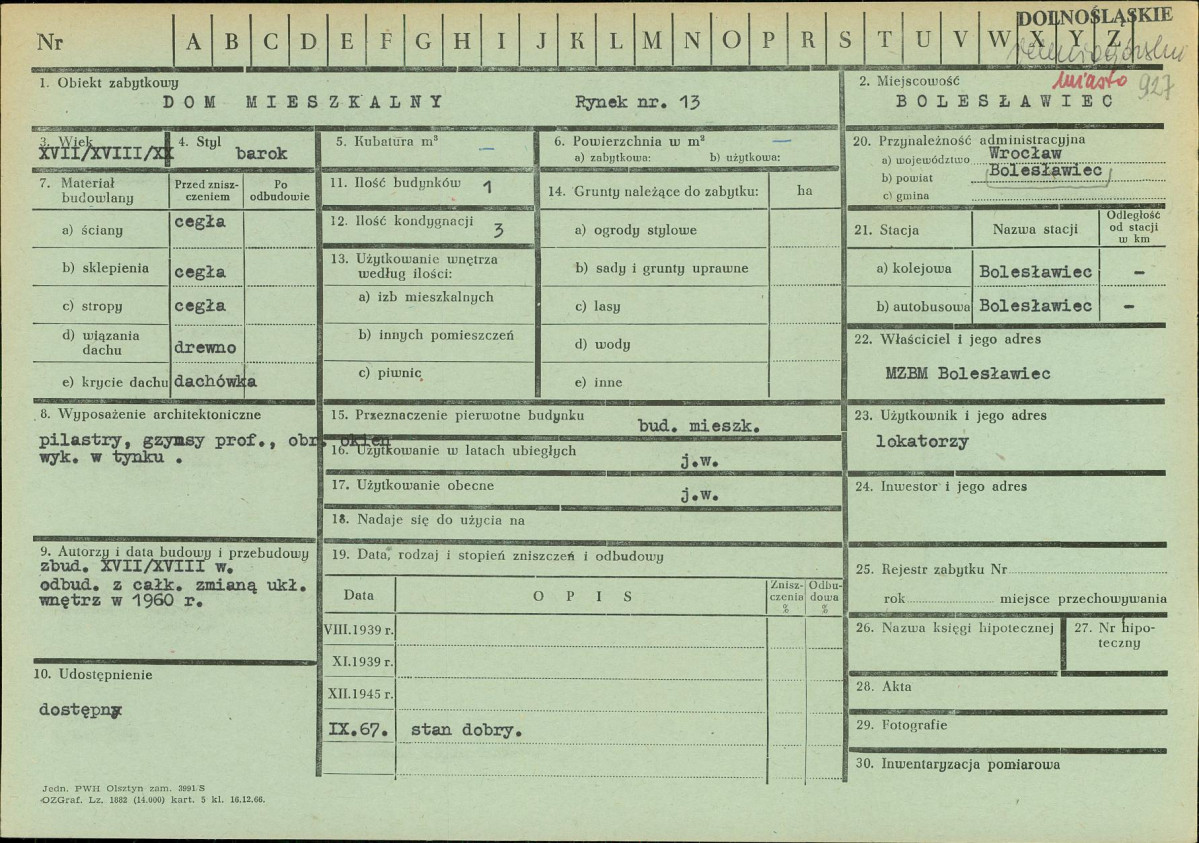 DOLNOŚLĄSKIE
Nr A B C D E F G H I J K L M N O P R S T U V W X Y Z
miasto 927
1. Obiekt zabytkowy
DOM MIESZKALNY Rynek nr. 13
2. Miejscowość
BOLESŁAWIEC
3. Wiek
XVII/XVIII/XX
4. Styl
barok
5. Kubatura m³ —
6. Powierzchnia w m² —
a) zabytkowa: b) użytkowa:
7. Materiał budowlany
Przed zniszczeniem
Po odbudowie
a) ściany cegła
b) sklepienia cegła
c) stropy cegła
d) wiązania dachu drewno
e) krycie dachu dachówka
11. Ilość budynków 1
12. Ilość kondygnacji 3
13. Użytkowanie wnętrza
według ilości:
a) izb mieszkalnych
b) innych pomieszczeń
c) piwnic
14. Grunty należące do zabytku: ha
a) ogrody stylowe
b) sady i grunty uprawne
c) lasy
d) wody
e) inne
8. Wyposażenie architektoniczne
pilastry, gzymsy prof., obr. okien
wyk. w tynku .
9. Autorzy i data budowy i przebudowy
zbud. XVII/XVIII w.
odbud. z całk. zmianą ukł.
wnętrz w 1960 r.
10. Udostępnienie
dostępny
15. Przeznaczenie pierwotne budynku
bud. mieszk.
16. Użytkowanie w latach ubiegłych
j.w.
17. Użytkowanie obecne
j.w.
18. Nadaje się do użycia na
19. Data, rodzaj i stopień zniszczeń i odbudowy
Data OPIS Zniszczenia % Odbudowa %
VIII.1939 r.
XI.1939 r.
XII.1945 r.
IX.67. stan dobry.
20. Przynależność administracyjna
a) województwo Wrocław
b) powiat Bolesławiec
c) gmina
21. Stacja Nazwa stacji Odległość od stacji w km
a) kolejowa Bolesławiec –
b) autobusowa Bolesławiec –
22. Właściciel i jego adres
MZBM Bolesławiec
23. Użytkownik i jego adres
lokatorzy
24. Inwestor i jego adres
25. Rejestr zabytku Nr
rok miejsce przechowywania
26. Nazwa księgi hipotecznej
27. Nr hipoteczny
28. Akta
29. Fotografie
30. Inwentaryzacja pomiarowa
Jedn. PWH Olsztyn zam. 3991/S
OZGraf. Lz. 1882 (14.000) kart. 5 kl. 16.12.66.